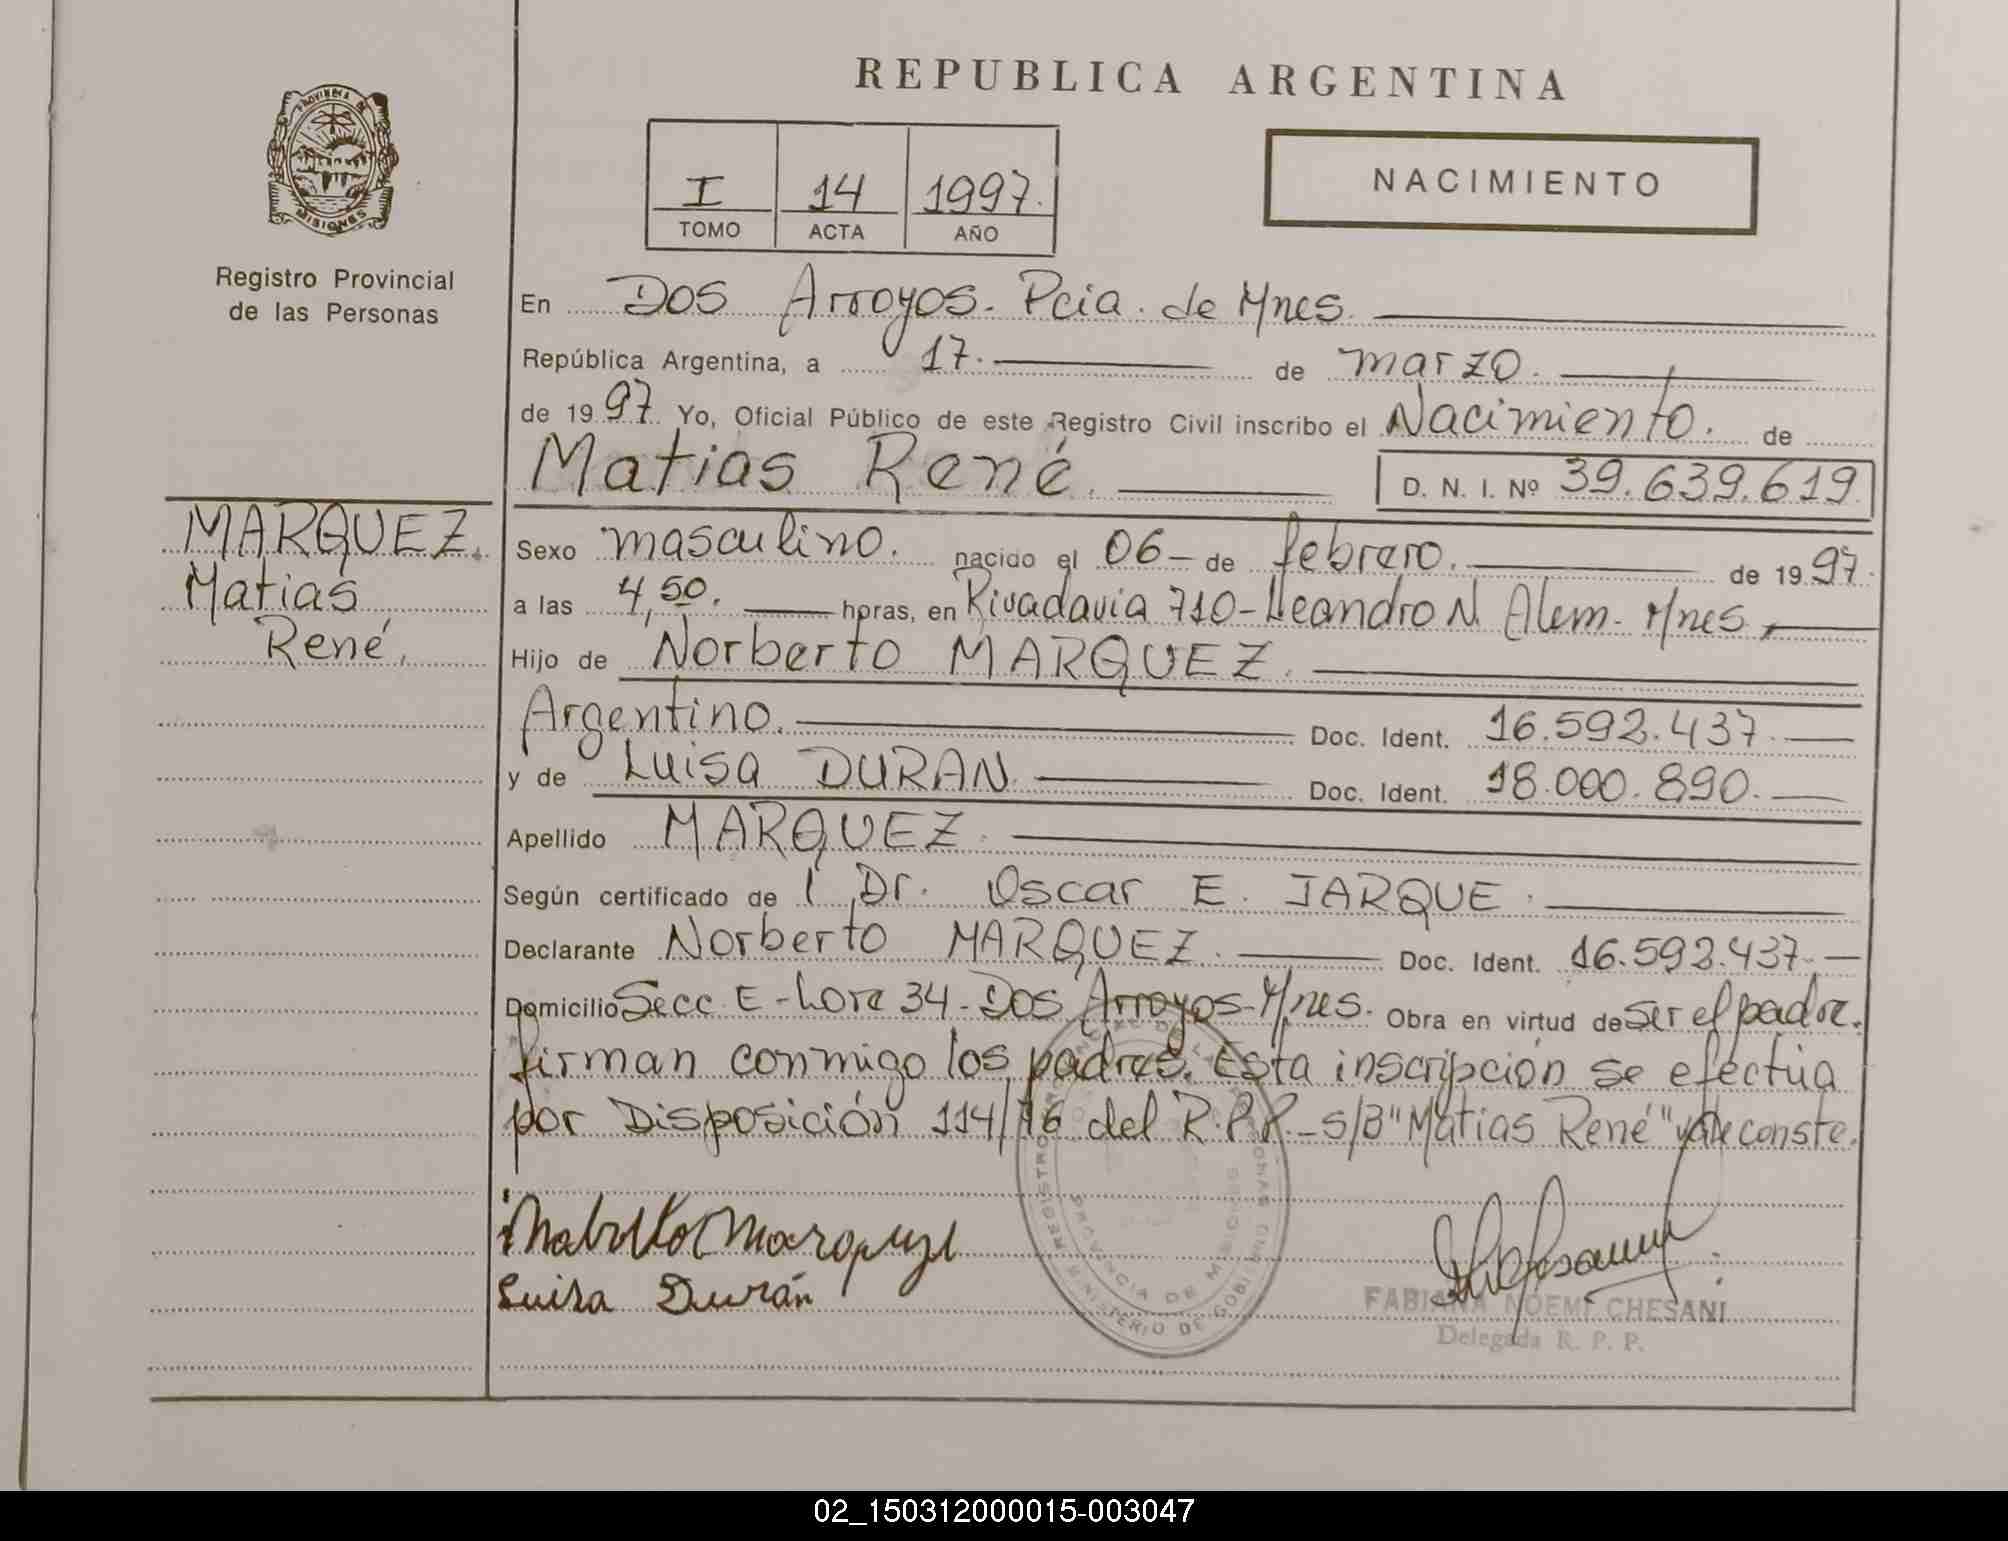 REPUBLICA ARGENTINA
PROVINCIA DE
MISIONES
Registro Provincial
de las Personas
I 14 1997.
TOMO ACTA AÑO
NACIMIENTO
En Dos Arroyos. Pcia. de Mnes.
República Argentina, a 17. de marzo.
de 1997. Yo, Oficial Público de este Registro Civil inscribo el Nacimiento. de
Matias René. D. N. I. Nº 39.639.619
MARQUEZ.
Matias
René.
Sexo masculino. nacido el 06 - de febrero. de 1997.
a las 4,50. horas, en Rivadavia 710 - Leandro N. Alem. Mnes,
Hijo de Norberto MARQUEZ.
Argentino. Doc. Ident. 16.592.437.
y de Luisa DURAN. Doc. Ident. 18.000.890.
Apellido MARQUEZ.
Según certificado de l Dr. Oscar E. JARQUE.
Declarante Norberto MARQUEZ. Doc. Ident. 16.592.437.
Domicilio Secc E - Lote 34 - Dos Arroyos - Mnes. Obra en virtud de ser el padre.
firman conmigo los padres. Esta inscripción se efectúa
por Disposición 114/76 del R.P.P. - S/B "Matias René" vale conste.
Marquez
Luisa Durán
REGISTRO PROVINCIAL DE LAS PERSONAS
PROVINCIA DE MISIONES
MINISTERIO DE GOBIERNO
FABIANA NOEMI CHESANI
Delegada R. P. P.
02_150312000015-003047